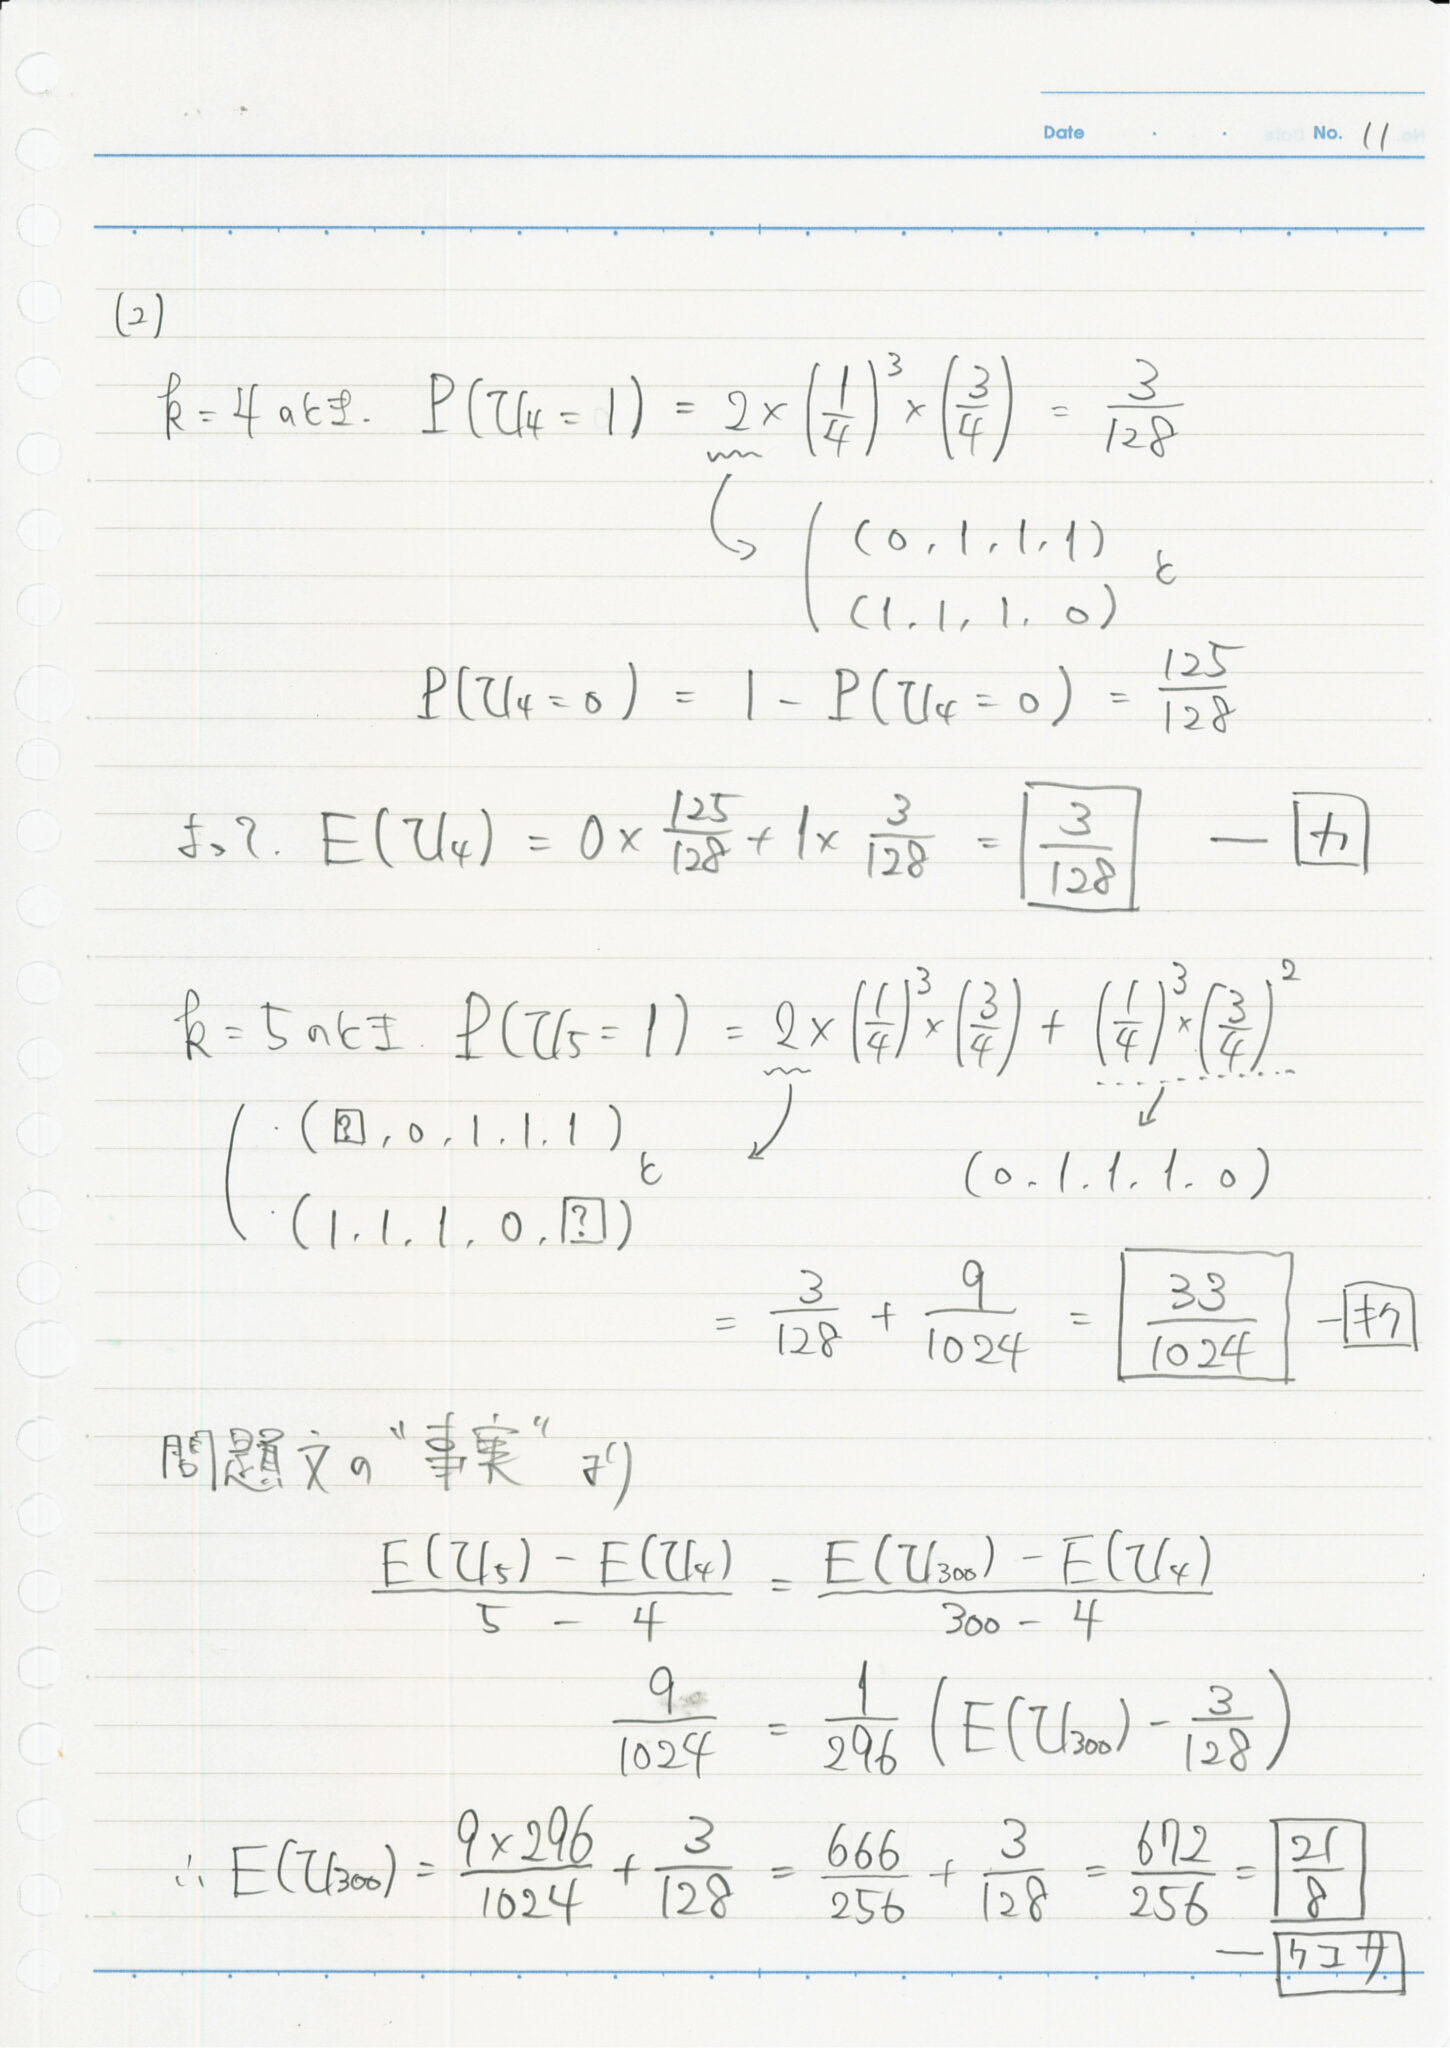 Date No. 11
(2)
k=4のとき. P(U₄=1) = 2×(1/4)³×(3/4) = 3/128
(0,1,1,1)と
(1,1,1,0)
P(U₄=0) = 1-P(U₄=0) = 125/128
よって. E(U₄) = 0×125/128+1×3/128 = 3/128 ― カ
k=5のとき. P(U₅=1) = 2×(1/4)³×(3/4)+(1/4)³×(3/4)²
・(?,0,1,1,1)と
・(1,1,1,0,?)
(0.1.1.1.0)
= 3/128 + 9/1024 = 33/1024 ― キク
問題文の"事実"より
(E(U₅)-E(U₄))/(5-4) = (E(U₃₀₀)-E(U₄))/(300-4)
9/1024 = 1/296 (E(U₃₀₀)-3/128)
∴ E(U₃₀₀) = 9×296/1024 + 3/128 = 666/256 + 3/128 = 672/256 = 21/8
― ケコサ